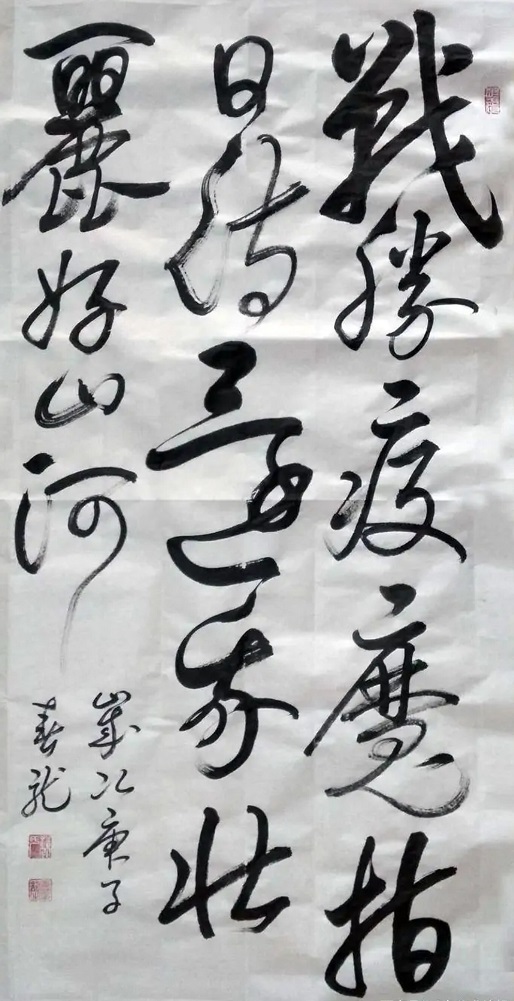 戰勝疫魔指
日待還我壯
麗好山河
歲次庚子
春龍